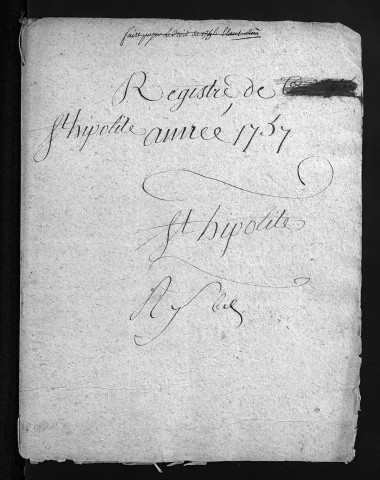 faire payer le droit de
Registre de
St hipolite année 1757
St hipolite